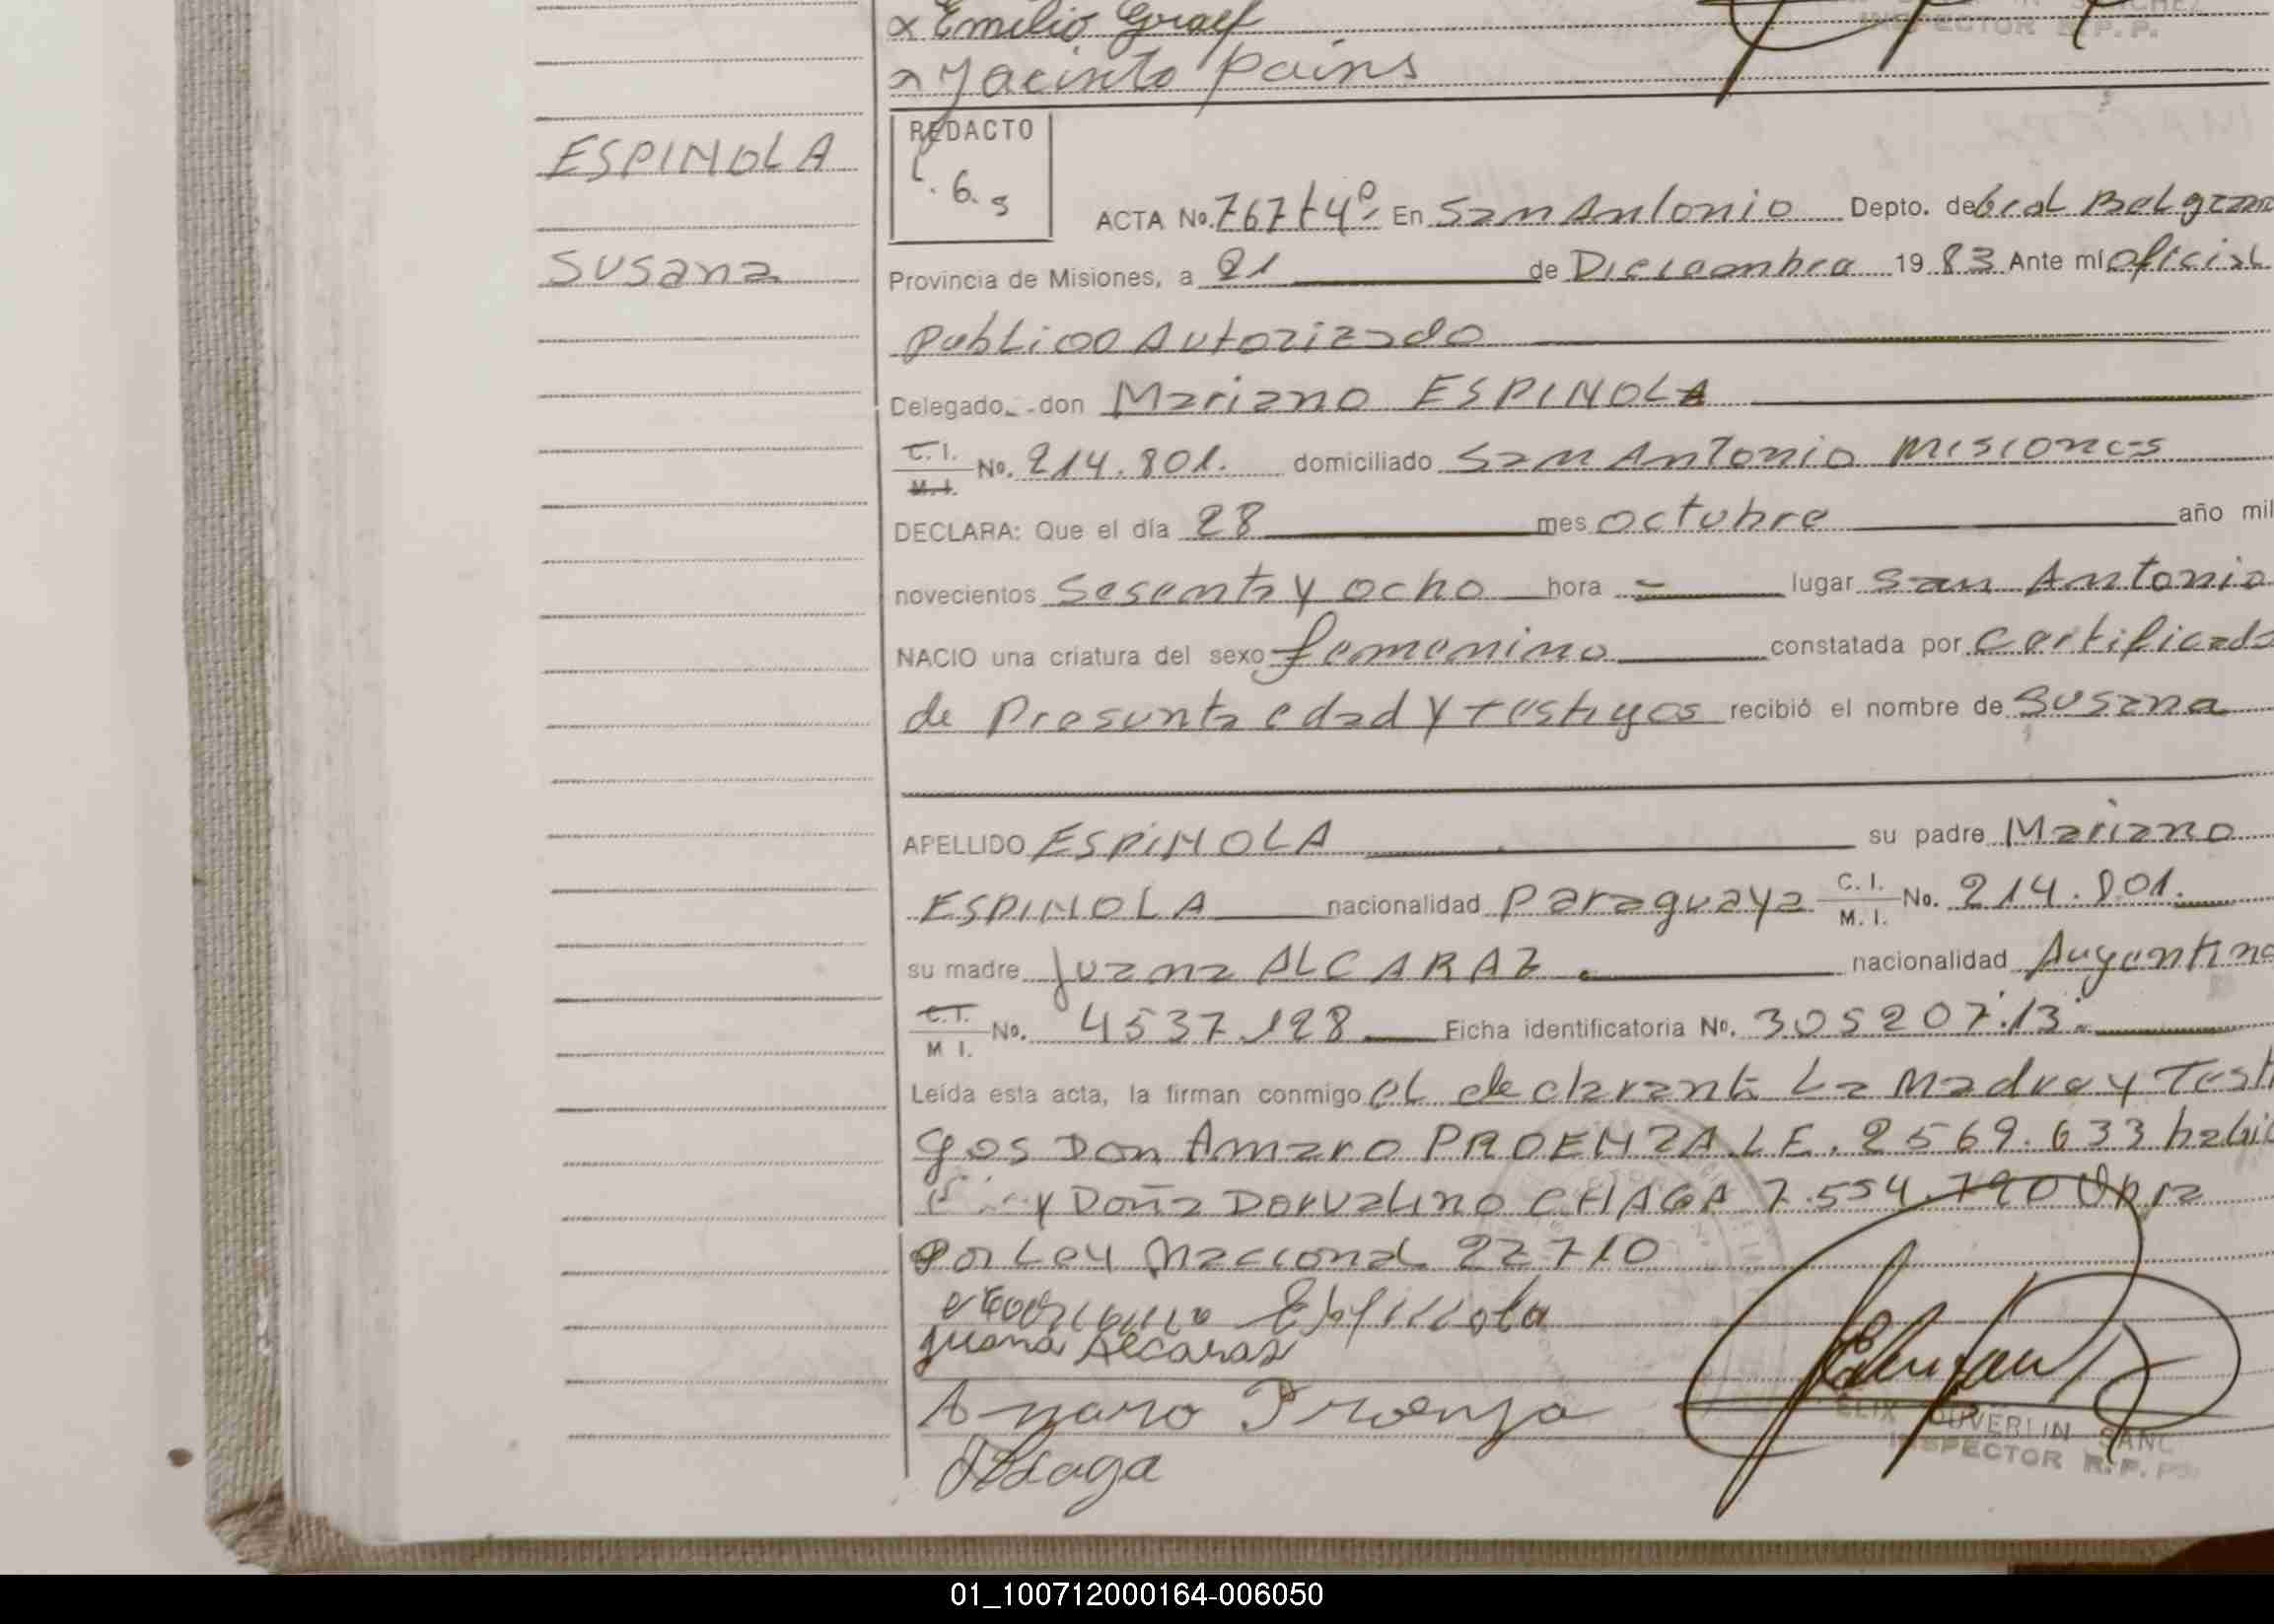 x Emilio Graef
x Jacinto Pains
INSPECTOR R.P.P.
ESPINOLA
Susana
REDACTO
ACTA No. 767 t-4º; En San Antonio Depto. de Gral Belgrano
Provincia de Misiones, a 21 de Diciembre 19 83 Ante mí oficial
publico Autorizado
Delegado don Mariano ESPINOLA
C.I. M.I. No. 214.801. domiciliado San Antonio Misiones
DECLARA: Que el día 28 mes octubre año mil
novecientos Sesenta y ocho hora = lugar San Antonio
NACIO una criatura del sexo femenino constatada por Certificado
de Presunta edad y testigos recibió el nombre de Susana
APELLIDO ESPINOLA su padre Mariano
ESPINOLA nacionalidad Paraguaya C.I. M.I. No. 214.801.
su madre Juana ALCARAZ. nacionalidad Argentina
C.I. M I. No. 4537.128 Ficha identificatoria No. 305207.13.
Leída esta acta, la firman conmigo el declarante La Madre y Testi
gos Don Amaro PROENZA L.E. 2569.633 habi
y Doña Dorvalino CHAGA 7.554.790
por Ley Nacional 22710
Mariano Espinola
Juana Alcaraz
Amaro Proenza
Chaga
ELIX DUVERLIN SANC
INSPECTOR R.P.P.
01_100712000164-006050